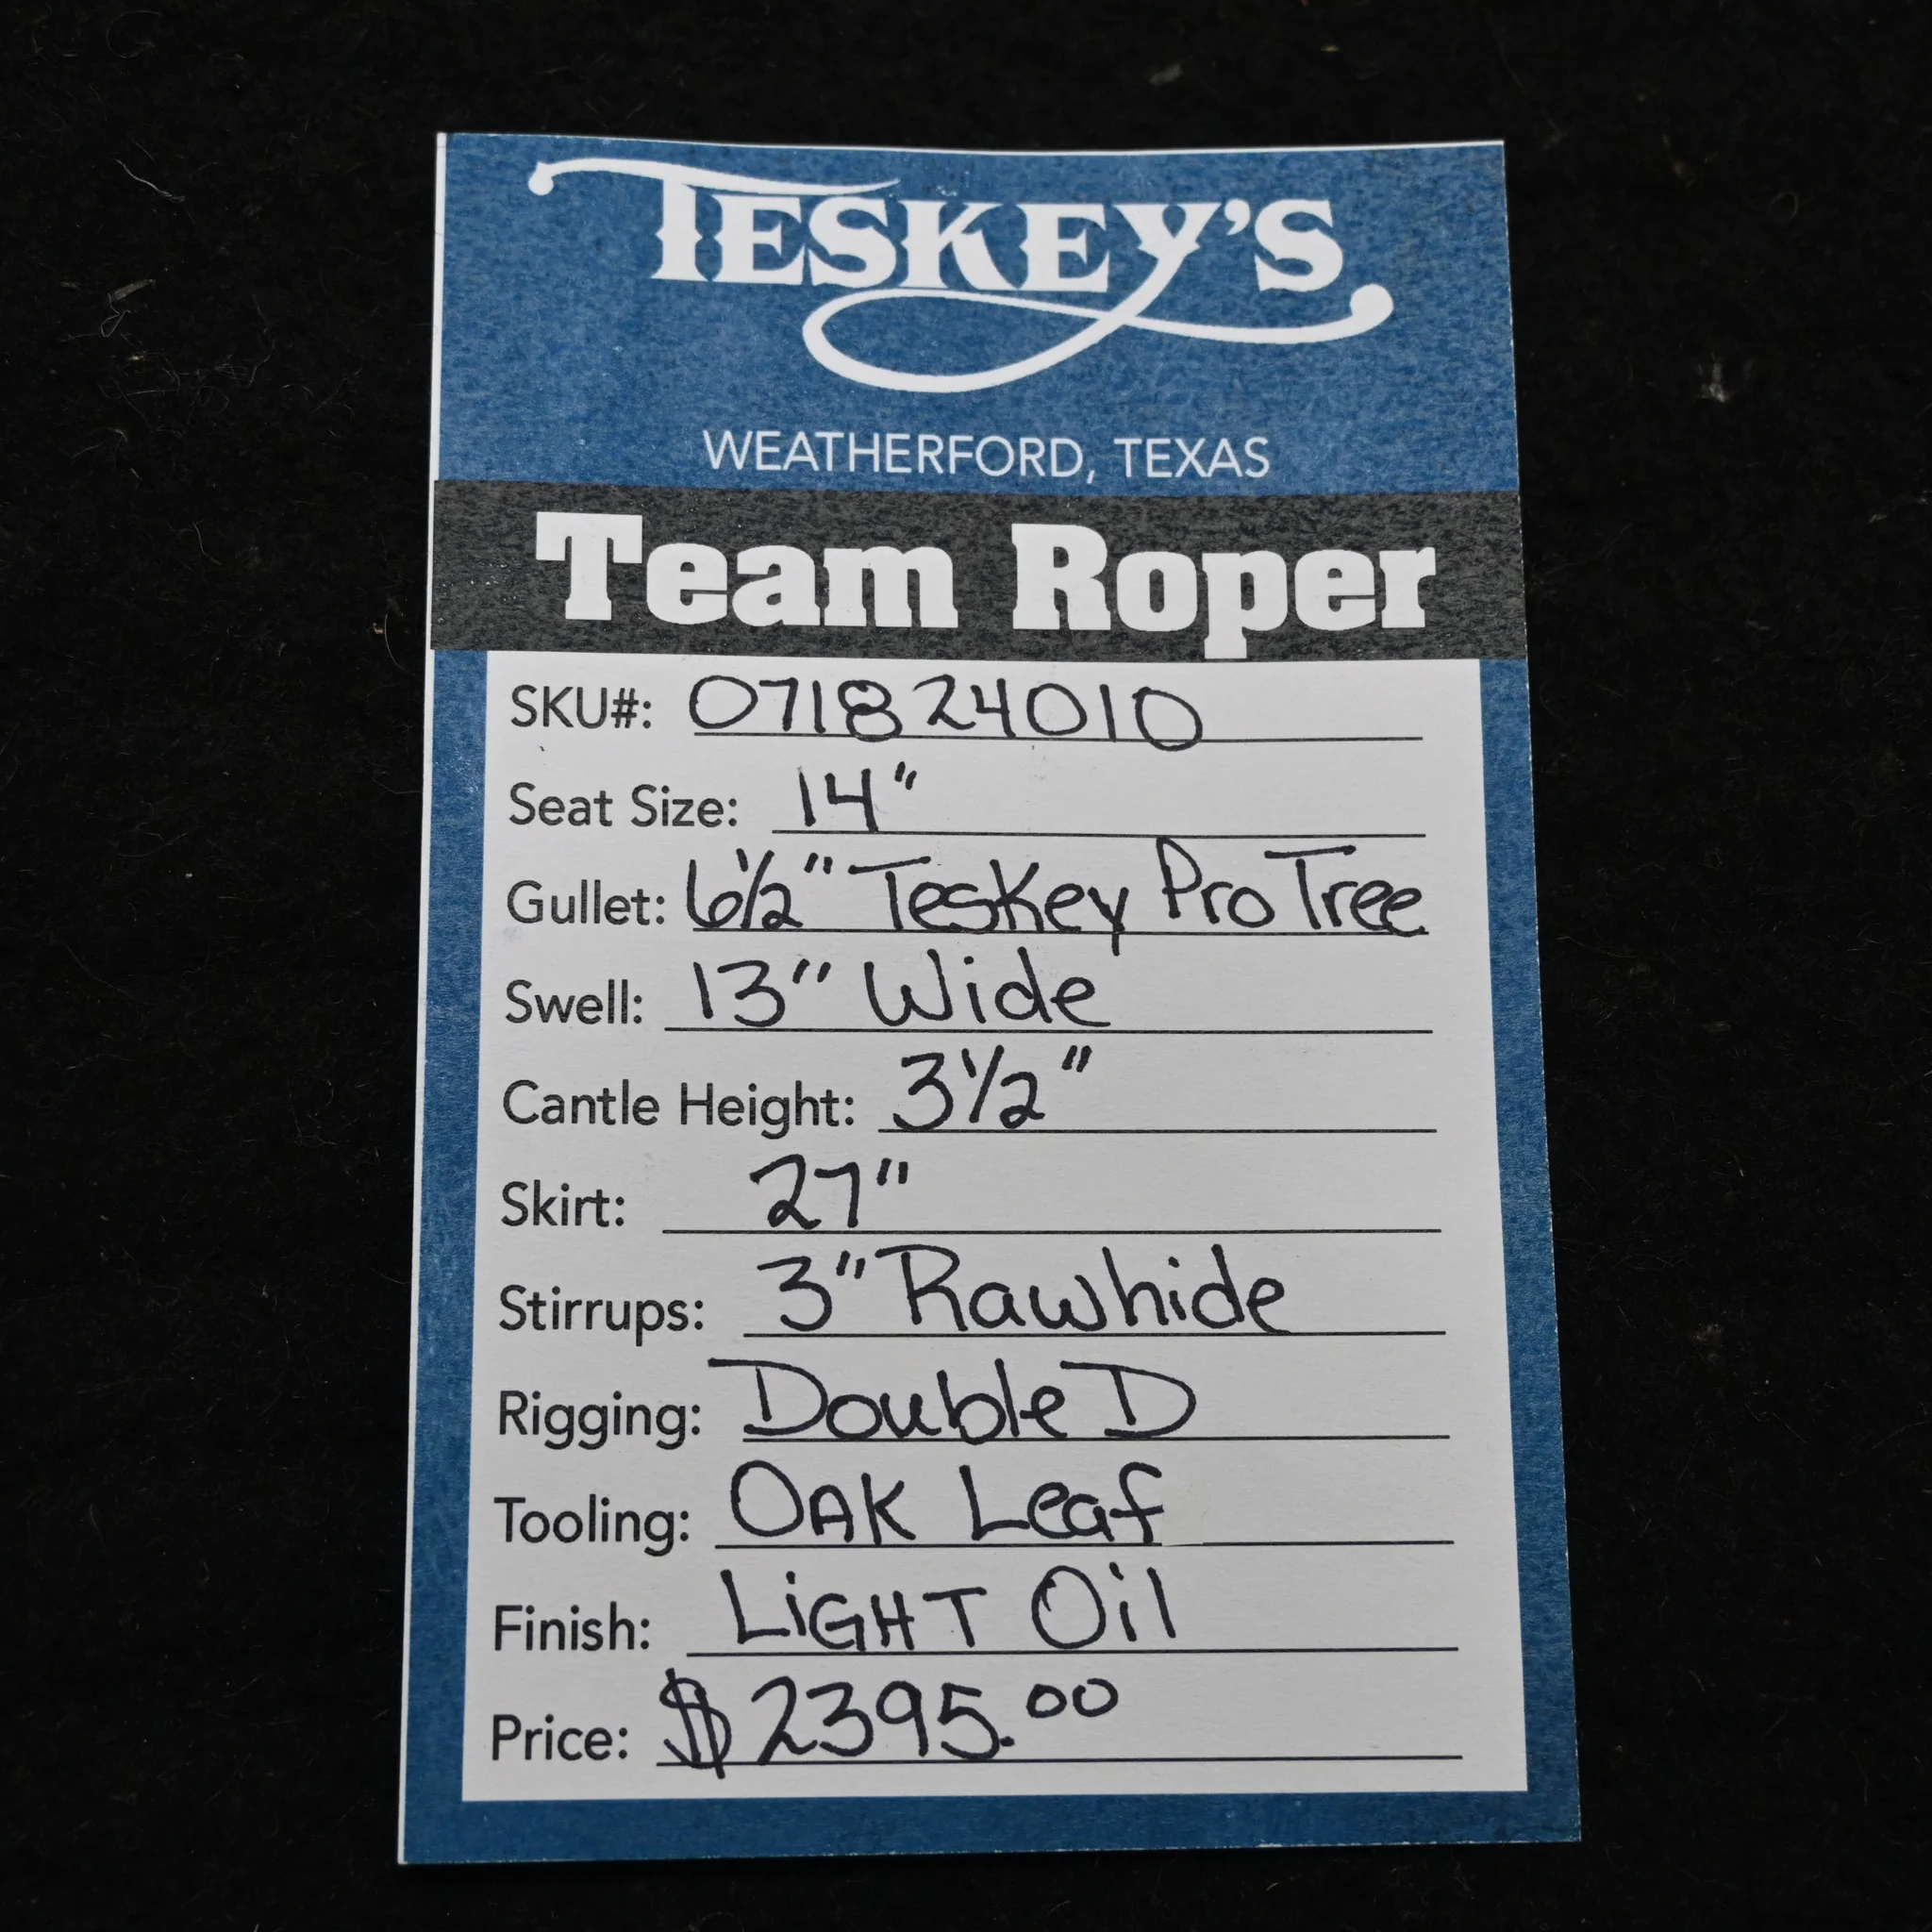 TESKEY'S
WEATHERFORD, TEXAS
Team Roper
SKU#: 071824010
Seat Size: 14"
Gullet: 6 1/2" Teskey Pro Tree
Swell: 13" Wide
Cantle Height: 3 1/2"
Skirt: 27"
Stirrups: 3" Rawhide
Rigging: Double D
Tooling: OAK Leaf
Finish: LiGHT Oil
Price: $2395.00